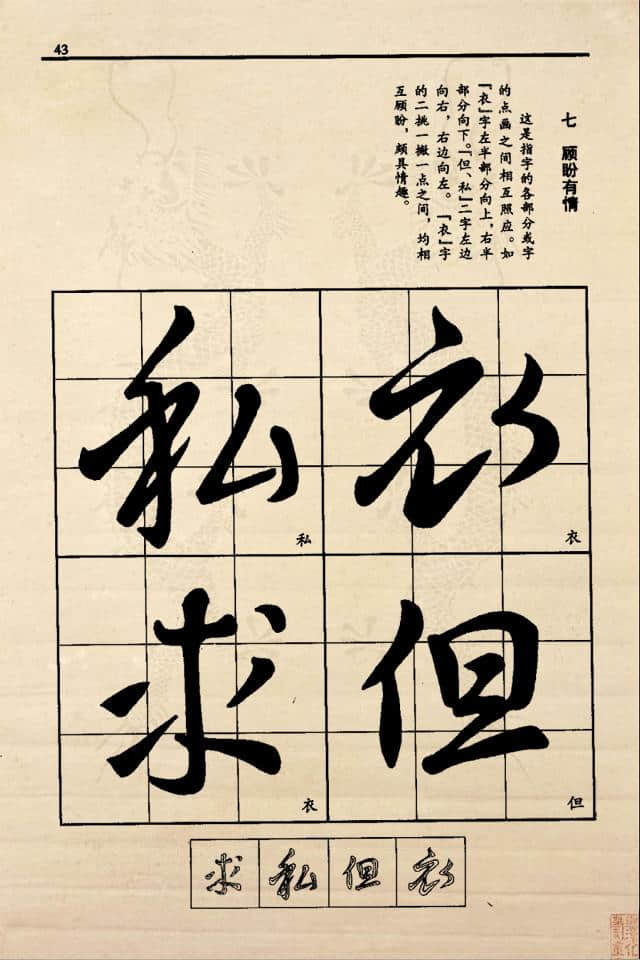 43
七 顾盼有情
这是指字的各部分或字
的点画之间相互照应。如
『衣』字左半部分向上，右半
部分向下。『但、私』二字左边
向右，右边向左。『衣』字
的二挑一撇一点之间，均相
互顾盼，颇具情趣。
衣
衣
但
但
私
私
求
衣
衣 但 私 求